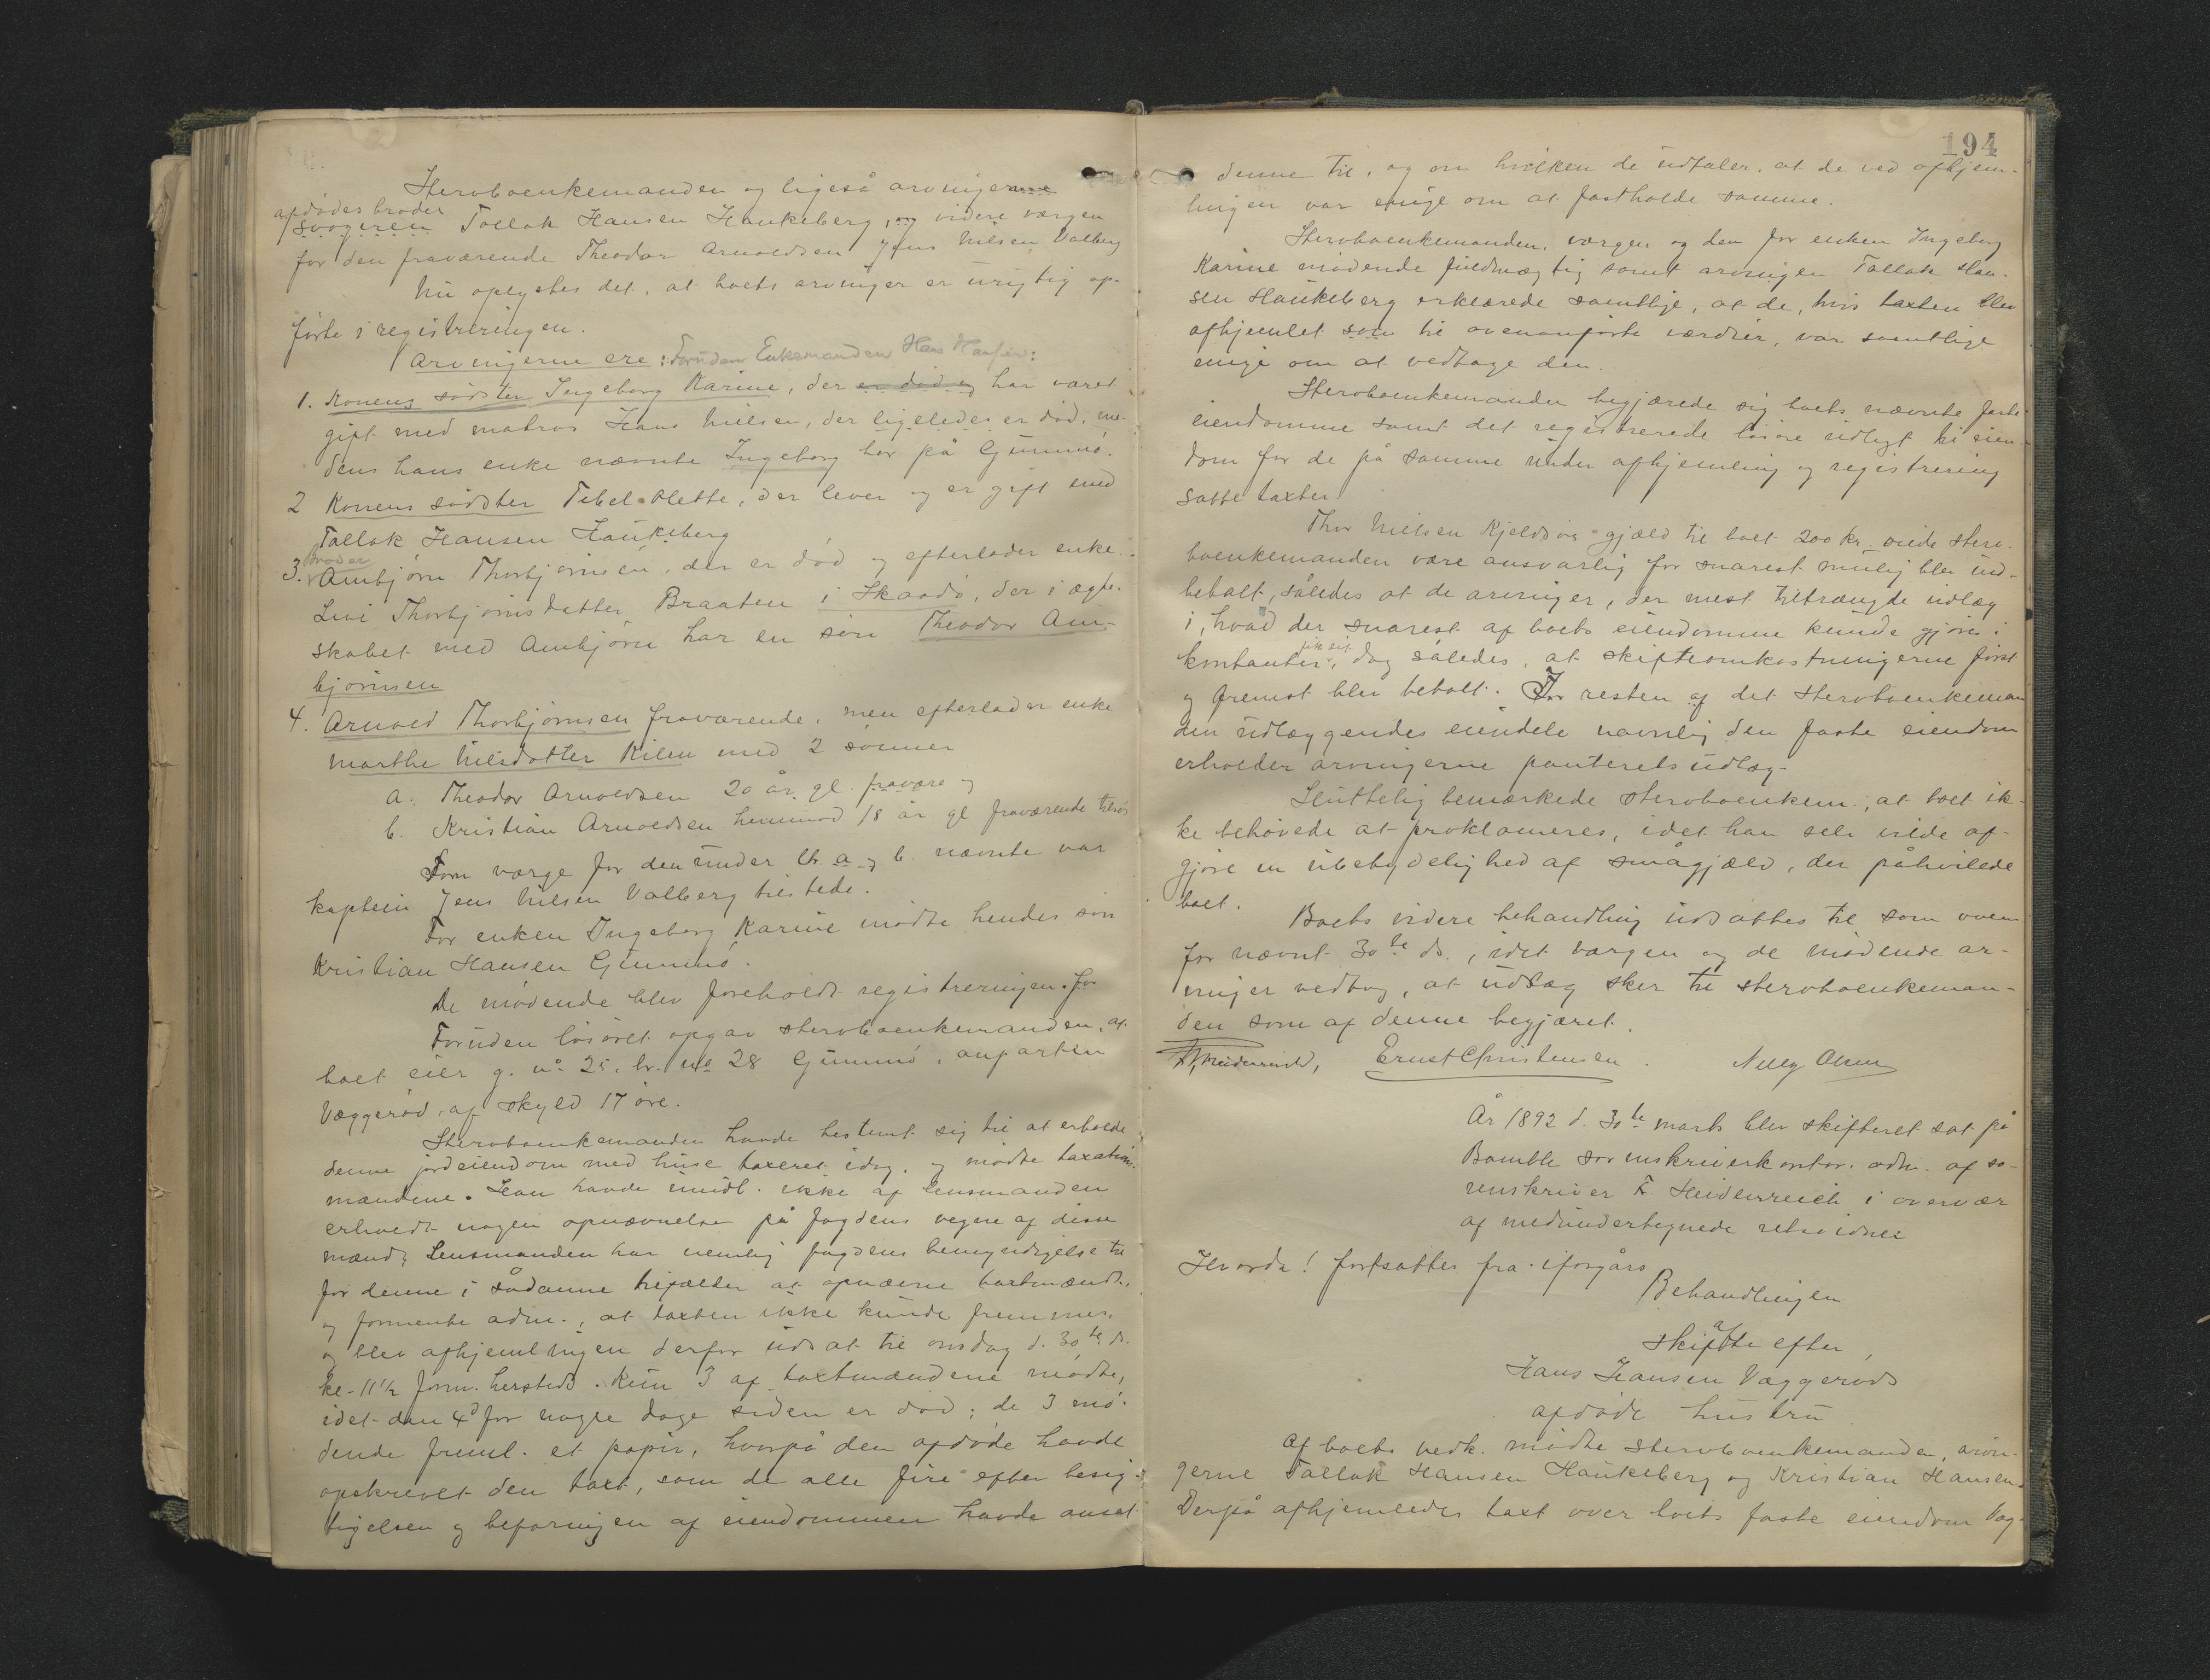 Stervboenkemanden og ligeså arvingerne
afdødes broder
svogeren Tallak Hansen Haukeberg, og videre værgen
for den fraværende Theodor Arnoldsen Jens Nilsen Valberg
Nu oplystes det, at boets arvinger er urigtig op-
førte i registreringen.
Arvingerne ere: Foruden Enkemanden Hans Hansen:
1. Konens søster Ingeborg Karine, der er død og har været
gift med matros Hans Nielsen, der ligeledes er død, me-
dens hans enke nævnte Ingeborg bor på Gummø.
2 Konens søster Tibel Olette, der lever og er gift med
Tallak Hansen Haukeberg
broder
3. Ambjørn Thorbjørnsen, der er død og efterlader enke
Livi Thorbjørnsdatter Braaten i Skaadø, der i ægte-
skabet med Ambjørn har en søn Theodor Am-
bjørnsen
4. Arnold Thorbjørnsen fraværende, men efterlader enke
Marthe Nilsdatter Kilen med 2 sønner
a. Theodor Arnoldsen 20 år gl. fravære og
b. Kristian Arnoldsen henimod 18 år gl fraværende tilsøs
Som værge for den under lit. a og b. nævnte var
kaptein Jens Nilsen Valberg tilstede.
For enken Ingeborg Karine mødte hendes søn
Kristian Hansen Gummø.
De mødende blev foreholdt registreringen. for
Foruden løsøret opgav stervboenkemanden, at
boet eier g. no 25, br. no 28 Gummø, anparten
Væggerød, af skyld 17 øre.
Stervboenkemanden havde bestemt sig til at erholde
denne jordeiendom med huse taxeret idag, og mødte taxations-
mændene. Han havde imidl. ikke af lensmanden
erholdt nogen opnævnelse på fogdens vegne af disse
mænd; Lensmanden har nemlig fogdens bemyndigelse til
for denne i sådanne tilfælder at opnævne taxtmænd,
og formente adm., at taxten ikke kunde fremmes,
og blev afhjemlingen derfor udsat til onsdag d. 30te ds.
kl. 11 1/2 form. hersteds. Kun 3 af taxtmændene mødte,
idet den 4d for nogle dage siden er død; de 3 mø-
dende freml. et papir, hvorpå den afdøde havde
opskrevet den taxt, som de alle fire efter besig-
tigelsen og befaringen af eiendommen havde anset
194
denne til, og om hvilken de udtaler, at de ved afhjem-
lingen var enige om at fastholde samme.
Stervboenkemanden, værgen og den for enken Ingeborg
Karine mødende fuldmægtig samt arvingen Tallak Han-
sen Haukeberg erklærede samtlige, at de, hvis taxten blev
afhjemlet som til ovenanførte værdier, var samtlige
enige om at vedtage den.
Stervboenkemanden begjærede sig boets nævnte faste
eiendomme samt det registrerede løsøre udlagt til eien-
dom for de på samme under afhjemling og registrering
satte taxter.
Thor Nielsen Kjeldsøs gjæld til boet 200 kr. vilde sterv-
boenkemanden være ansvarlig for snarest mulig blev ind-
betalt, således at de arvinger, der mest tiltrængte udlæg
i, hvad der snarest af boets eiendomme kunde gjøres i
fik sit
kontanter, dog således, at skifteomkostningerne først
og fremst blev betalt. For resten af det stervboenkeman
den udlæggendes eiendele navnlig den faste eiendom
erholder arvingerne panteretsudlæg.
Sluttelig bemærkede stervboenkem., at boet ik-
ke behøvede at proklameres, idet han selv vilde af-
gjøre en ubetydelighed af smågjæld, der påhvilede
boet.
Boets videre behandling udsattes til som oven
for nævnt 30te ds., idet værgen og de mødende ar-
vinger vedtog, at udlæg sker til stervboenkeman-
den som af denne begjæret.
F. Heidenreich, Ernst Christensen. Nelly Olsen
År 1892 d. 30te marts blev skifteret sat på
Bamble sorenskriverkontor, adm. af so-
renskriver F. Heidenreich i overvær
af medundertegnede retsvidner
Hvorda! fortsattes fra iforgårs
Behandlingen
af
skifte efter
Hans Hansen Væggerøds
afdøde hustru
Af boets vedk. mødte stervboenkemanden, arvin-
gerne Tallak Hansen Haukeberg og Kristian Hansen.
Derpå afhjemledes taxt over boets faste eiendom Væg-